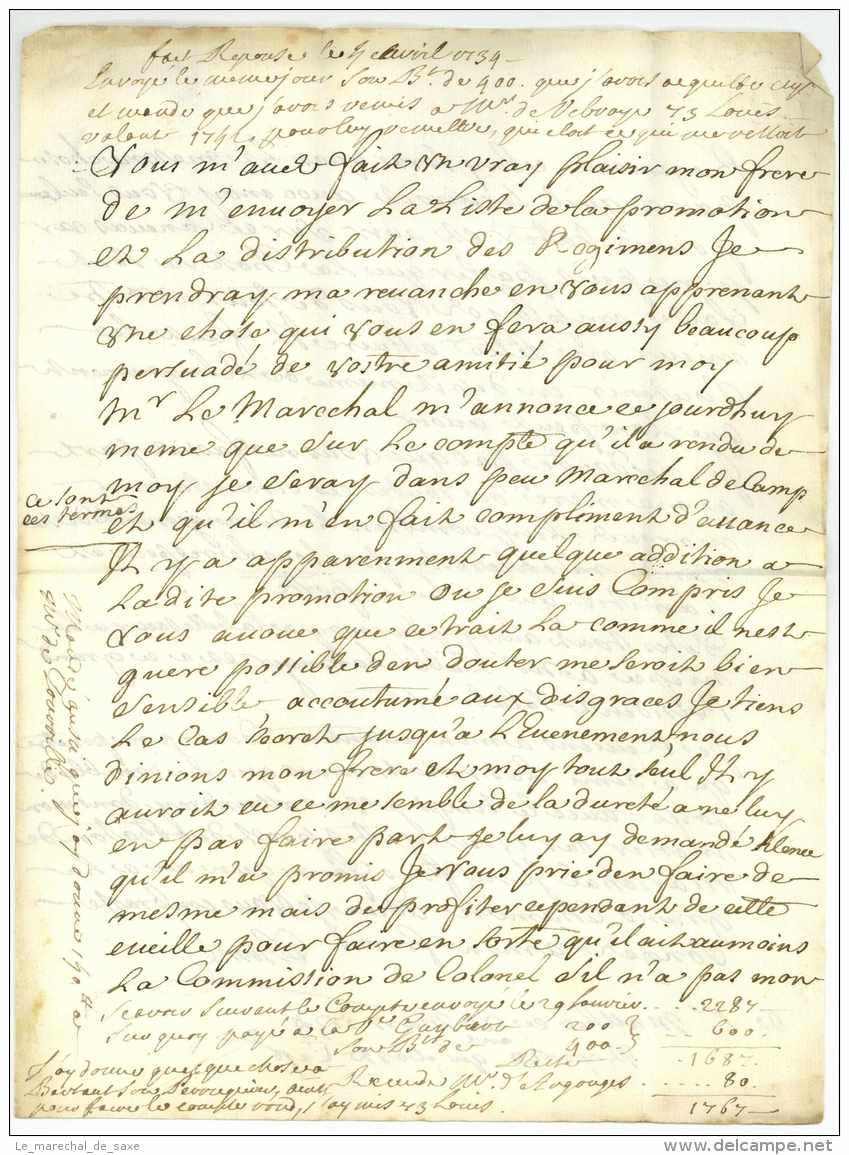 fait Reponse le 5 avril 1734
Envoyé le meme jour son B.t de 400. que j'avois acquitté
et mandé que j'avois remis a Mr. de 73 Louis
valant 174
Vous m'avez fait un vray plaisir mon frere
de m'envoyer la Liste de la promotion
et la distribution des Regimens Je
prendray ma revanche en vous apprenant
une chose qui vous en fera aussy beaucoup
persuadé de vostre amitié pour moy
Mr Le Marechal m'annonce ce jourdhuy
meme que sur le compte qu'il a rendu de
moy je seray dans peu Marechal de Camp
ce sont
ces termes
et qu'il m'en fait compliment d'avance
Il y a apparenment quelque addition a
La dite promotion ou je suis Compris Je
vous avoue que ce trait La comme il nest
guere possible den douter me seroit bien
sensible accoutumé aux disgraces Je tiens
Le Cas secret jusqu'a L'Evenement nous
dinions mon frere et moy tout seul Il y
auroit eu ce me semble de la dureté a ne luy
en pas faire part Je luy ay demandé silence
qu'il m'a promis Je vous prie den faire de
mesme mais de profiter cependant de cette
cueille pour faire en sorte qu'il ait au moins
La Commission de Colonel s'il n'a pas mon
Mandé aussi que j'ay donné 190 tt a
Mr de
Scavoir suivant le Compte envoyé le 29 Janvier 2287
Sur quoy payé a la 200 600
Son B.t de 400
Reste 1687
Receu de Mr. d'Argouges 80
1767
J'ay donné quelque chose a
Bertaut son Perruquier,
pour faire le compte rond, j'ay mis 73 Louis.
Le_marechal_de_saxe